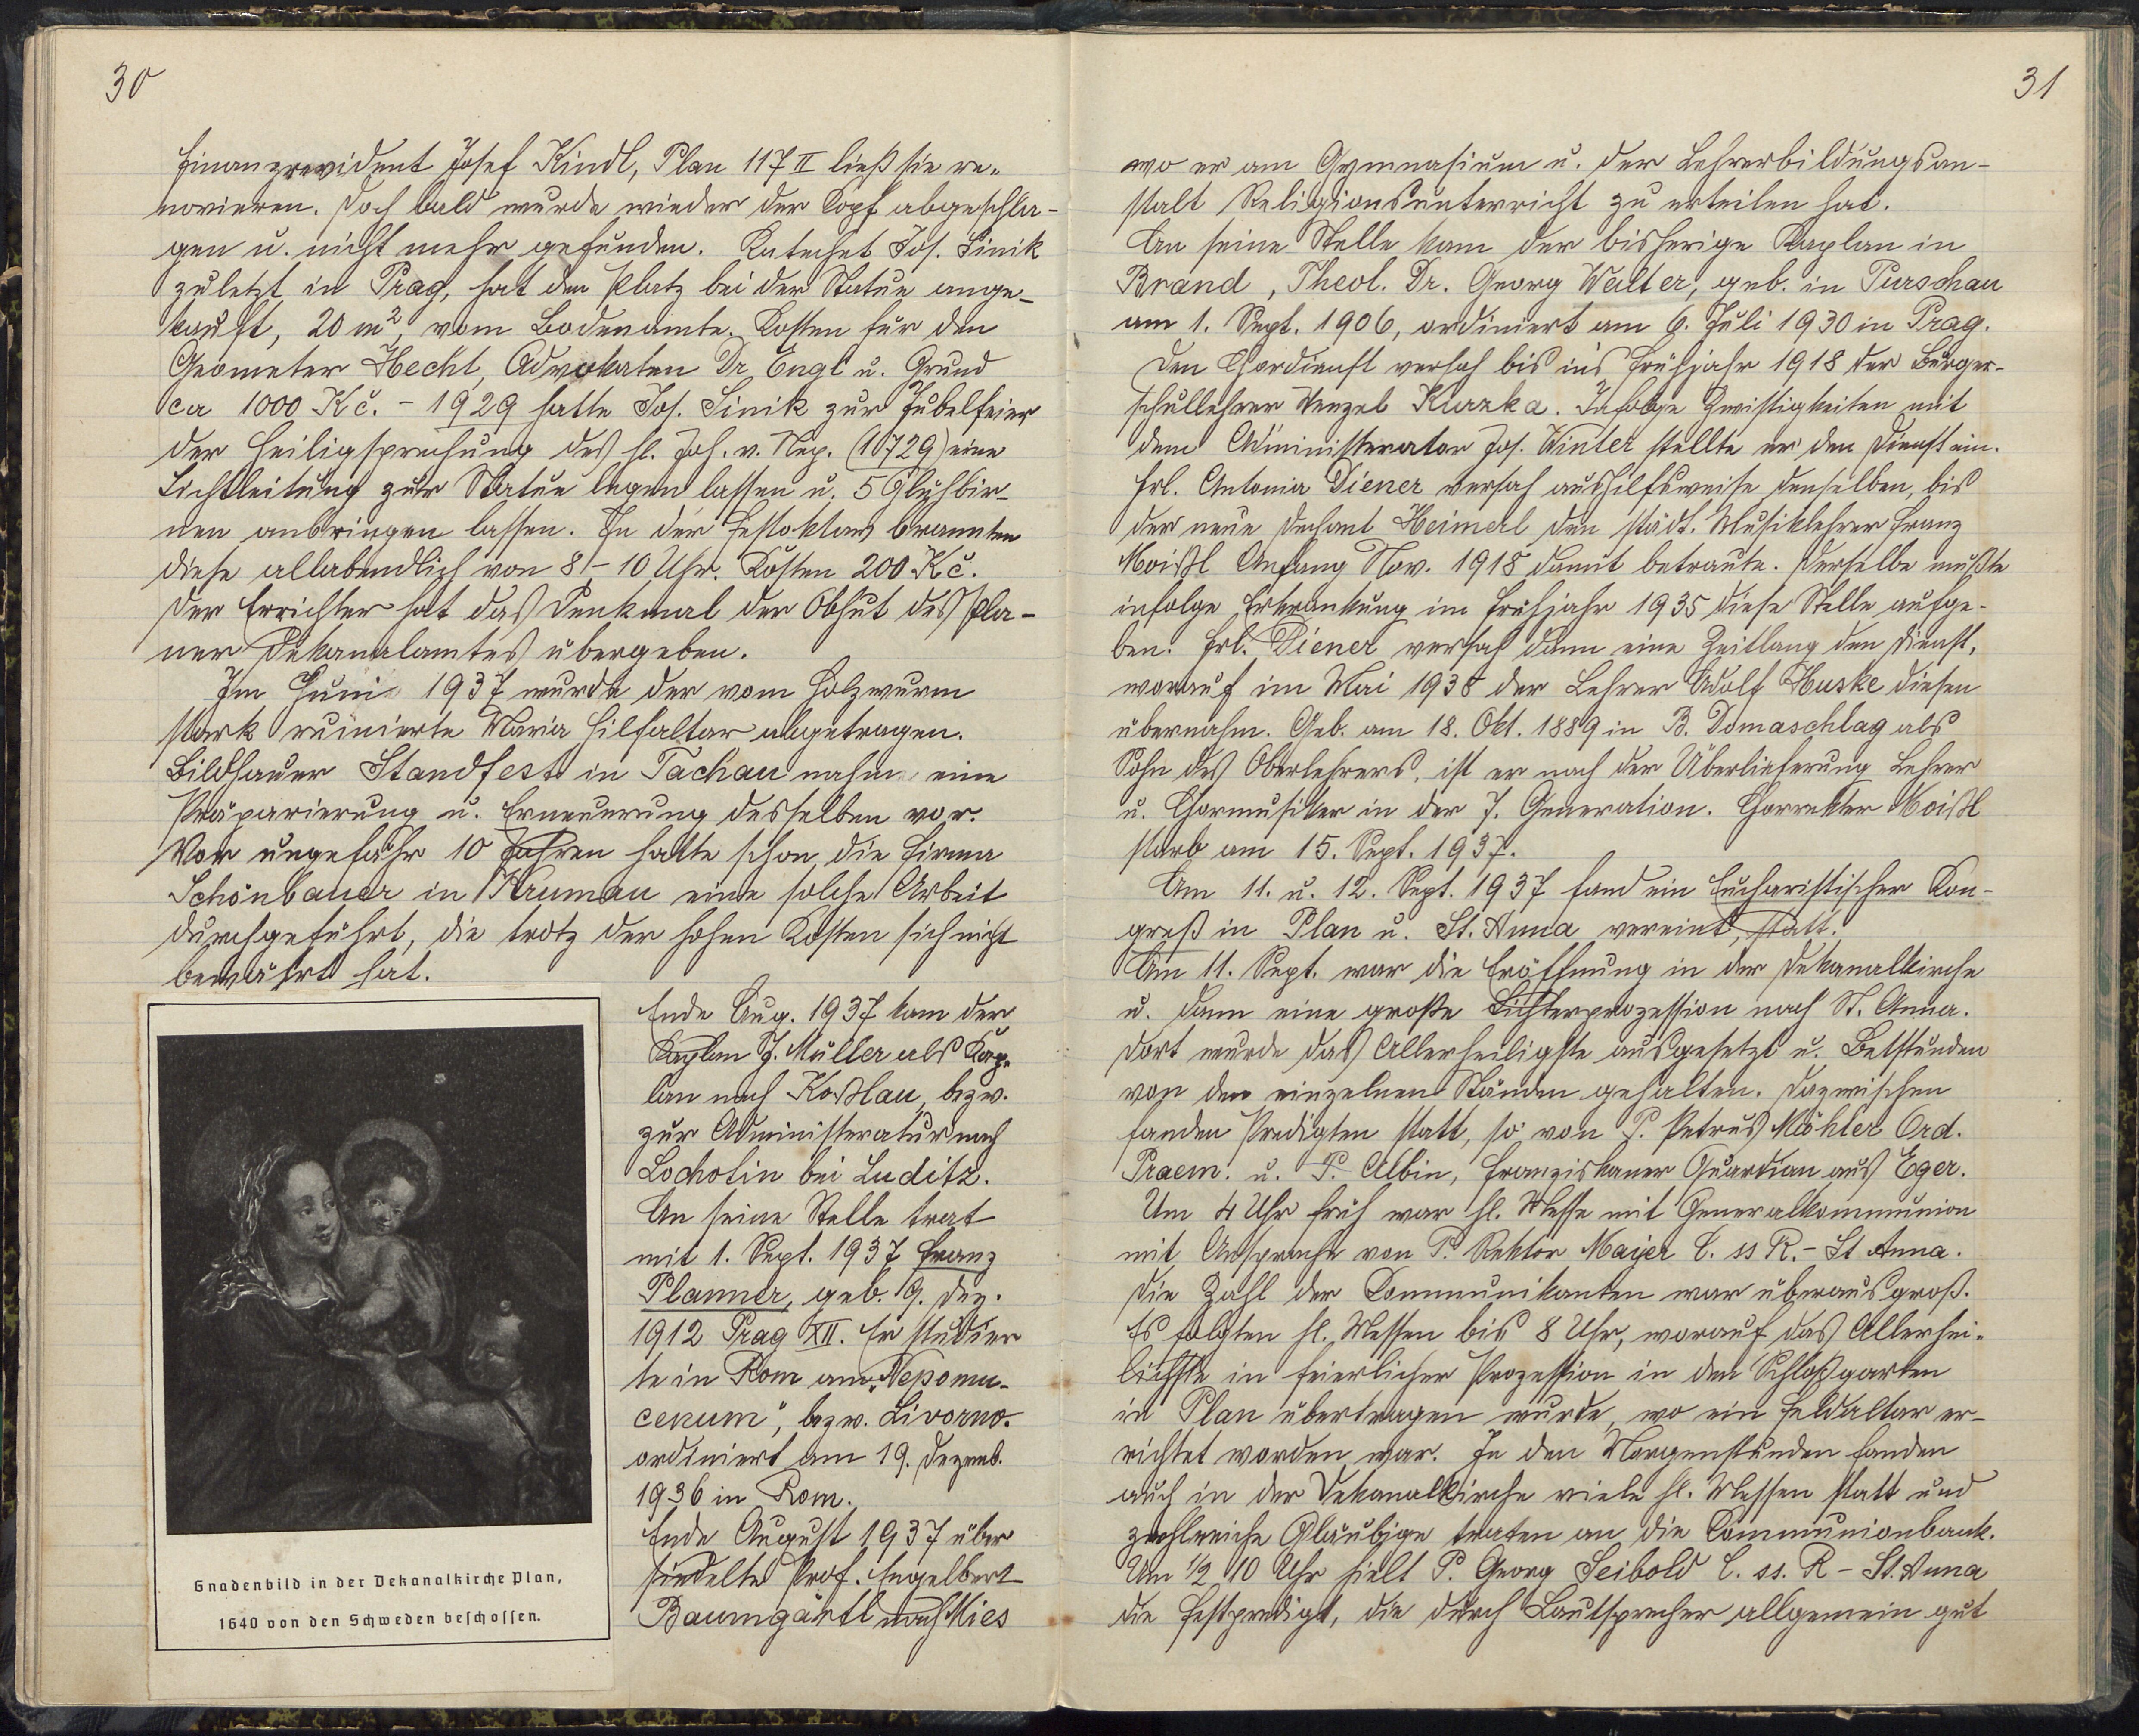 30
Finanzrevident Josef Kindl, Plan 117 II ließ sie re-
novieren. Doch bald wurde wieder der Kopf abgeschla-
gen u. nicht mehr gefunden. Katechet Jos. Sinik
zuletzt in Prag, hat den Platz bei der Statue ange-
kauft, 20 m², vom Bodenamte. Kosten für den
Geometer Hecht, Advokaten Dr Engl u. Grund
ca 1000 Kč. - 1929 hatte Jos. Sinik zur Jubelfeier
der Heiligsprechung des hl. Joh. v. Nep. (1729) eine
Lichtleitung zur Statue legen lassen u. 5 Glühbir-
nen anbringen lassen. In der Festoktav brannten
diese allabendlich von 8 - 10 Uhr. Kosten 200 Kč.
Der Errichter hat das Denkmal der Obhut des Pla-
ner Dekanalamtes übergeben.
Im Juni 1937 wurde der vom Holzwurm
stark ruinierte Maria Hilfaltar abgetragen.
Bildhauer Standfest in Tachau nahm eine
Präparierung u. Erneuerung desselben vor.
Vor ungefähr 10 Jahren hatte schon die Firma
Schönbauer in Krumau eine solche Arbeit
durchgeführt, die trotz der hohen Kosten sich nicht
bewährt hat.
Ende Aug. 1937 kam der
Kaplan J. Müller als Kap-
lan nach Koßlau, bezw.
zur Administeratur nach
Lochotin bei Luditz.
An seine Stelle trat
mit 1. Sept. 1937 Franz
Planner, geb. 9. Dez.
1912 Prag XII. Er studier
te in Rom am „Nepomu-
cenum", bezw. Livorno.
ordiniert am 19. Dezemb.
1936 in Rom.
Ende August 1937 über
siedelte Prof. Engelbert
Baumgärtl nach Mies
Gnadenbild in der Dekanalkirche Plan,
1640 von den Schweden beschossen.
31
wo er am Gymnasium u. der Lehrerbildungsan-
stalt Religionsunterricht zu erteilen hat.
An seine Stelle kam der bisherige Kaplan in
Brand, Theol. Dr. Georg Walter, geb. in Purschau
am 1. Sept. 1906, ordiniert am 6. Juli 1930 in Prag.
Den Chordienst versah bis ins Frühjahr 1918 der Bürger-
schullehrer Wenzel Kurzka. Infolge Zwistigkeiten mit
dem Administerator Jos. Winter stellte er den Dienst ein.
Frl. Antonia Diener versah aushilfsweise denselben, bis
der neue Dechant Heimerl den städt. Musiklehrer Franz
Moißl Anfang Nov. 1918 damit betraute. Derselbe mußte
infolge Erkrankung im Frühjahr 1935 diese Stelle aufge-
ben. Frl. Diener versah dann eine Zeitlang den Dienst,
worauf im Mai 1938 der Lehrer Adolf Huske diesen
übernahm. Geb. am 18. Okt. 1889 in B. Domaschlag als
Sohn des Oberlehrers, ist er nach der Überlieferung Lehrer
u. Chormusiker in der 7. Generation. Chorrektor Moißl
starb am 15. Sept. 1937.
Am 11. u. 12. Sept. 1937 fand ein Eucharistischer Kon-
greß in Plan u. St. Anna vereint, statt.
Am 11. Sept. war die Eröffnung in der Dekanalkirche
u. dann eine große Lichterprozession nach St. Anna.
Dort wurde das Allerheiligste ausgesetzt u. Betstunden
von den einzelnen Ständen gehalten. Dazwischen
fanden Predigten statt, so von P. Petrus Möhler Ord.
Praem. u. P. Albin, Franziskaner Guardian aus Eger.
Um 4 Uhr früh war hl. Messe mit Generalkommunion
mit Ansprache von P. Rektor Mayer C. ss R. - St Anna.
Die Zahl der Communikanten war überaus groß.
Es folgten hl. Messen bis 8 Uhr, worauf das Allerhei-
ligste in feierlicher Prozession in den Schloßgarten
in Plan übertragen wurde, wo ein Feldaltar er-
richtet worden war. In den Morgenstunden fanden
auch in der Dekanalkirche viele hl. Messen statt und
zahlreiche Gläubige traten an die Communionbank.
Um ½ 10 Uhr hielt P. Georg Seibold C. ss. R - St. Anna
die Festpredigt, die durch Lautsprecher allgemein gut